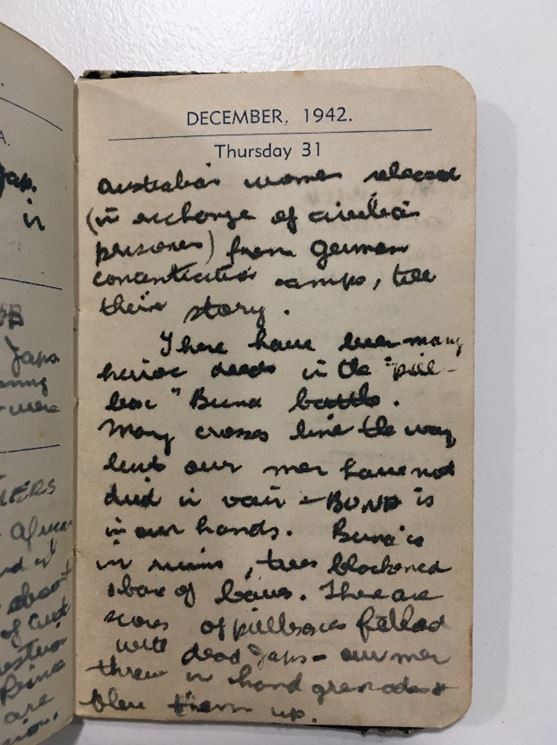 DECEMBER, 1942.
Thursday 31
Australia's women released
(in exchange of civilian
prisoners) from German
concentration camps, tell
their story.
There have been many
heroic deeds in the "pill-
box" Buna battle.
Many crosses line the way
but our men have not
died in vain - BUNA is
in our hands. Buna is
in ruins, trees blackened
& bare of leaves. There are
scores of pillboxes filled
with dead Japs - our men
threw in hand grenades &
blew them up.